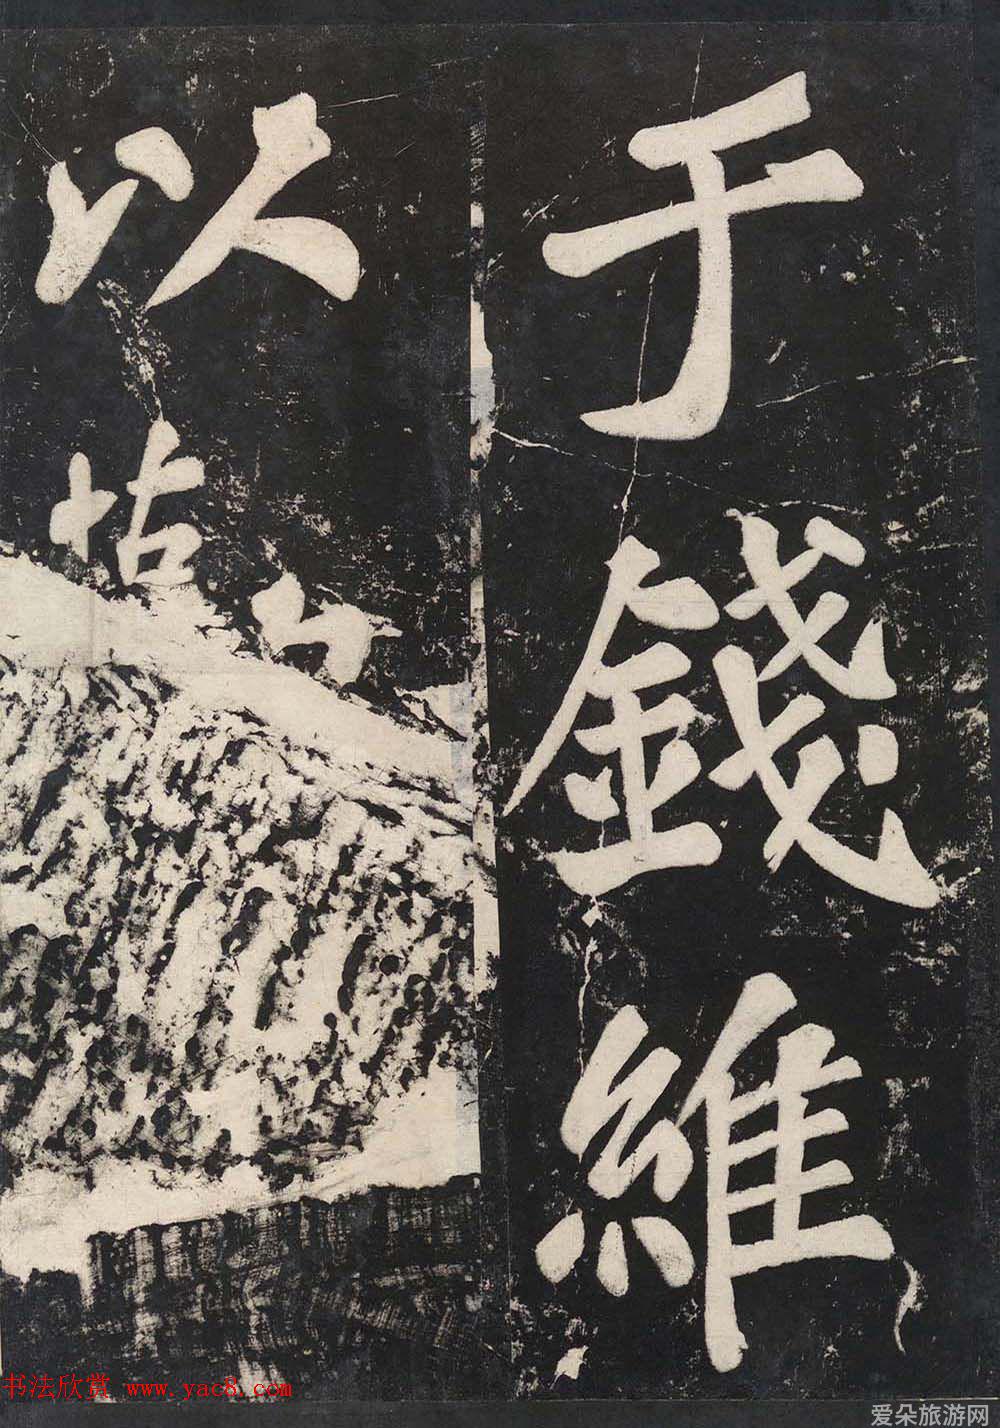 于錢維
以
书法欣赏 www.yac8.com
爱朵旅游网